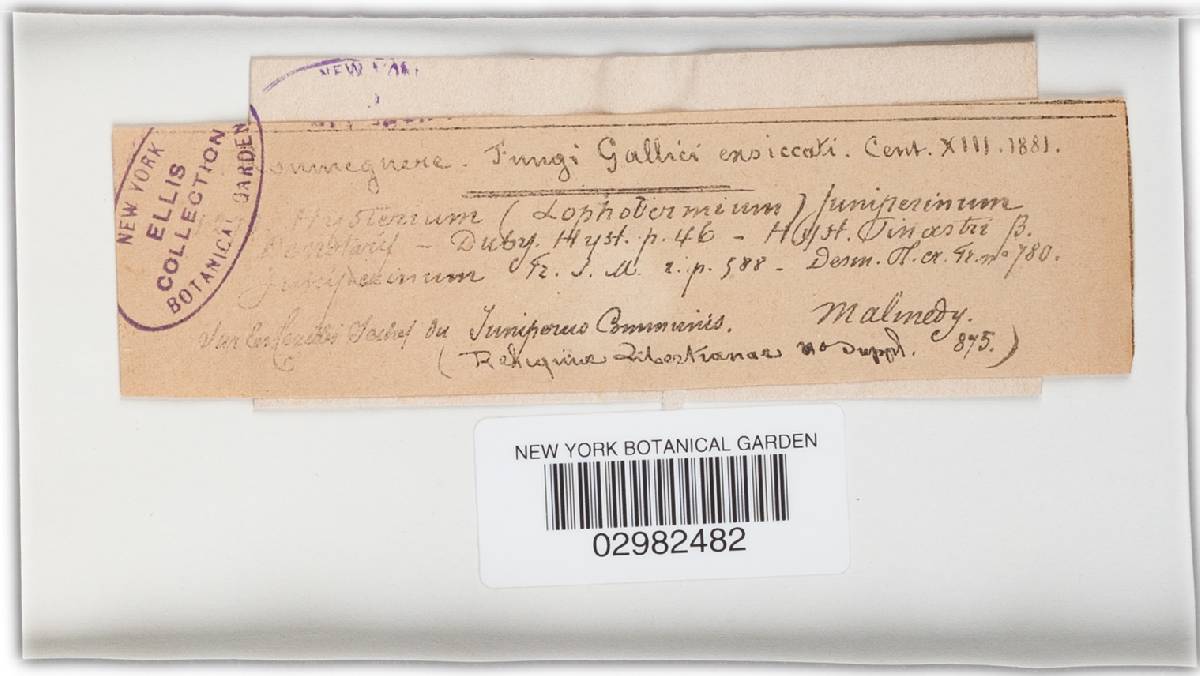 NEW YORK
ELLIS
COLLECTION
BOTANICAL GARDEN
Fungi Gallici exsiccati. Cent. XIII. 1881.
Hysterium (Lophodermium) juniperinum
Duby. Hyst. p. 46 - Hyst. Pinastri β.
juniperinum Fr. S. M. 2. p. 588 - Desm. Pl. cr. Fr. no 780.
du Juniperus Communis. Malmedy.
(Reliquiae Libertianae Suppl. 875.)
NEW YORK BOTANICAL GARDEN
02982482